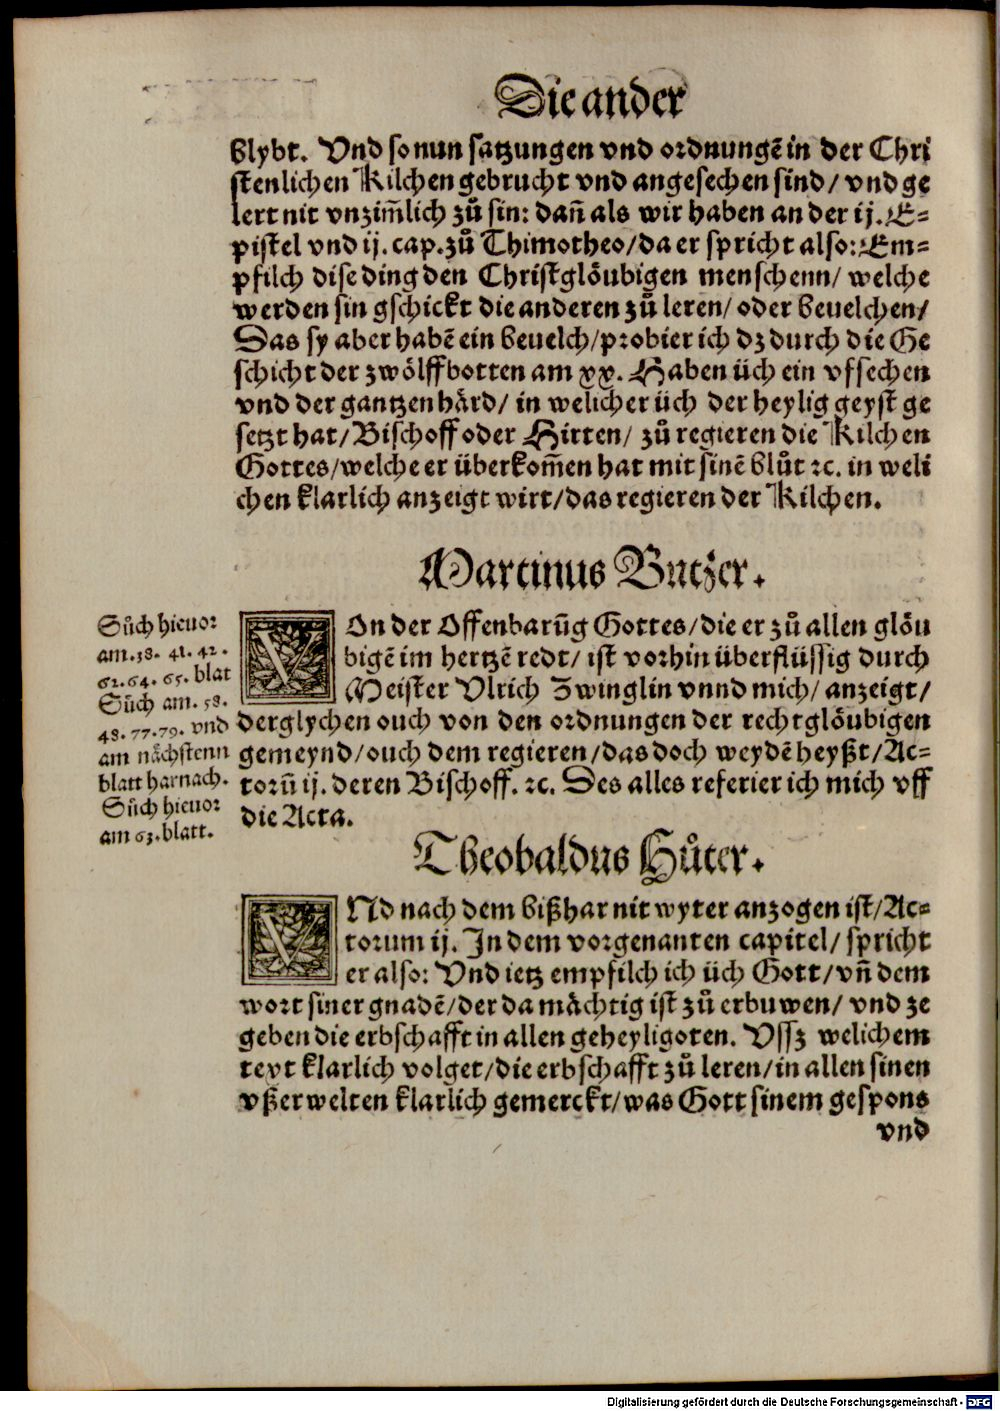 Die ander
blybt. Vnd so nun satzungen vnd ordnungē in der Chri
stenlichen Kilchen gebrucht vnd angesechen sind/ vnd ge
lert nit vnzim̄lich zů sin: dañ als wir haben an der ij. E-
pistel vnd ij. cap. zů Thimotheo/da er spricht also: Em-
pfilch dise ding den Christglöubigen menschenn/ welche
werden sin gschickt die anderen zů leren/ oder beuelchen/
Das sy aber habē ein beuelch/probier ich dz durch die Ge
schicht der zwölffbotten am xx. Haben üch ein vfsechen
vnd der gantzen härd/ in welicher üch der heylig geyst ge
setzt hat/ Bischoff oder Hirten/ zů regieren die Kilchen
Gottes/welche er überkom̄en hat mit sinē blůt ꝛc. in weli
chen klarlich anzeigt wirt/das regieren der Kilchen.
Martinus Butzer.
VOn der Offenbarūg Gottes/die er zů allen glöu
bigē im hertzē redt/ ist vorhin überflüssig durch
Meister Vlrich Zwinglin vnnd mich/ anzeigt/
derglychen ouch von den ordnungen der rechtglöubigen
gemeynd/ouch dem regieren/das doch weydē heyßt/Ac-
torū ij. deren Bischoff. ꝛc. Des alles referier ich mich vff
die Acta.
Sůch hieuor
am. 38. 41. 42.
62. 64. 65. blat
Sůch am. 58.
48. 77. 79. vnd
am nächstenn
blatt harnach.
Sůch hieuor
am 63. blatt.
Theobaldus Hůter.
VNd nach dem bißhar nit wyter anzogen ist/Ac-
torum ij. In dem vorgenanten capitel/ spricht
er also: Vnd ietz empfilch ich üch Gott/vñ dem
wort siner gnadē/der da mächtig ist zů erbuwen/ vnd ze
geben die erbschafft in allen geheyligoten. Vssz welichem
text klarlich volget/die erbschafft zů leren/in allen sinen
vßerwelten klarlich gemerckt/was Gott sinem gespons
vnd
Digitalisierung gefördert durch die Deutsche Forschungsgemeinschaft - DFG